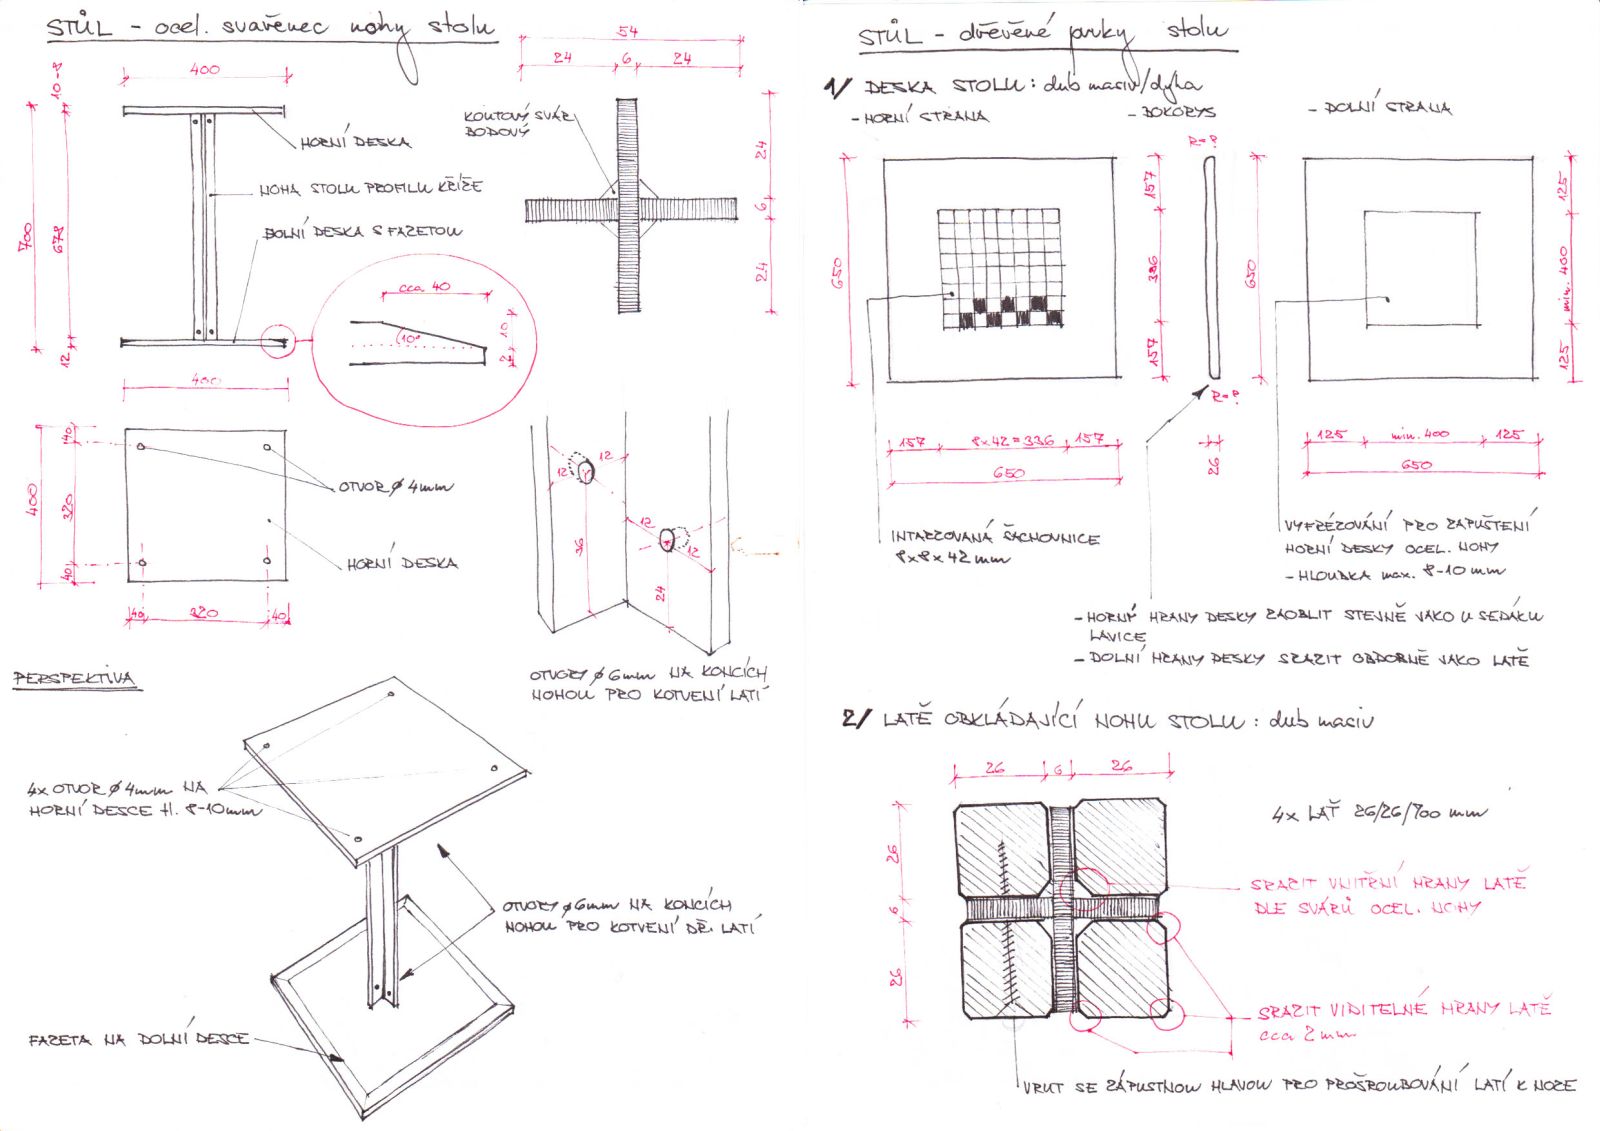 STŮL - ocel. svařenec nohy stolu
400
10-8
700
678
12
HORNÍ DESKA
NOHA STOLU PROFILU KŘÍŽE
DOLNÍ DESKA S FAZETOU
400
cca 40
10°
10
2
54
24 6 24
KOUTOVÝ SVÁR
BODOVÝ
24
6
24
400
40
320
40
40 320 40
OTVOR Ø 4mm
HORNÍ DESKA
12 12
12 12
36
24
OTVORY Ø 6mm NA KONCÍCH
NOHOU PRO KOTVENÍ LATÍ
PERSPEKTIVA
4x OTVOR Ø 4mm NA
HORNÍ DESCE tl. 8-10mm
OTVORY Ø 6mm NA KONCÍCH
NOHOU PRO KOTVENÍ DŘ. LATÍ
FAZETA NA DOLNÍ DESCE
STŮL - dřěvěné prvky stolu
1/ DESKA STOLU: dub masiv/dyha
- HORNÍ STRANA
- BOKORYS
- DOLNÍ STRANA
650
157
336
157
157 8x42=336 157
650
R=?
R=?
26
650
125
min. 400
125
125 min. 400 125
650
INTARZOVANÁ ŠACHOVNICE
8x8x42mm
VYFRÉZOVÁNÍ PRO ZAPUŠTĚNÍ
HORNÍ DESKY OCEL. NOHY
- HLOUBKA max. 8-10mm
- HORNÝ HRANY DESKY ZAOBLIT STEJNĚ JAKO U SEDÁKU
LAVICE
- DOLNÍ HRANY DESKY SRAZIT OBDOBNĚ JAKO LATĚ
2/ LATĚ OBKLÁDAJÍCÍ NOHU STOLU: dub masiv
26 6 26
26
6
26
4x LAŤ 26/26/700 mm
SRAZIT VNITŘNÍ HRANY LATĚ
DLE SVÁRŮ OCEL. NOHY
SRAZIT VIDITELNÉ HRANY LATĚ
cca 2mm
VRUT SE ZÁPUSTNOU HLAVOU PRO PROŠROUBOVÁNÍ LATÍ K NOZE